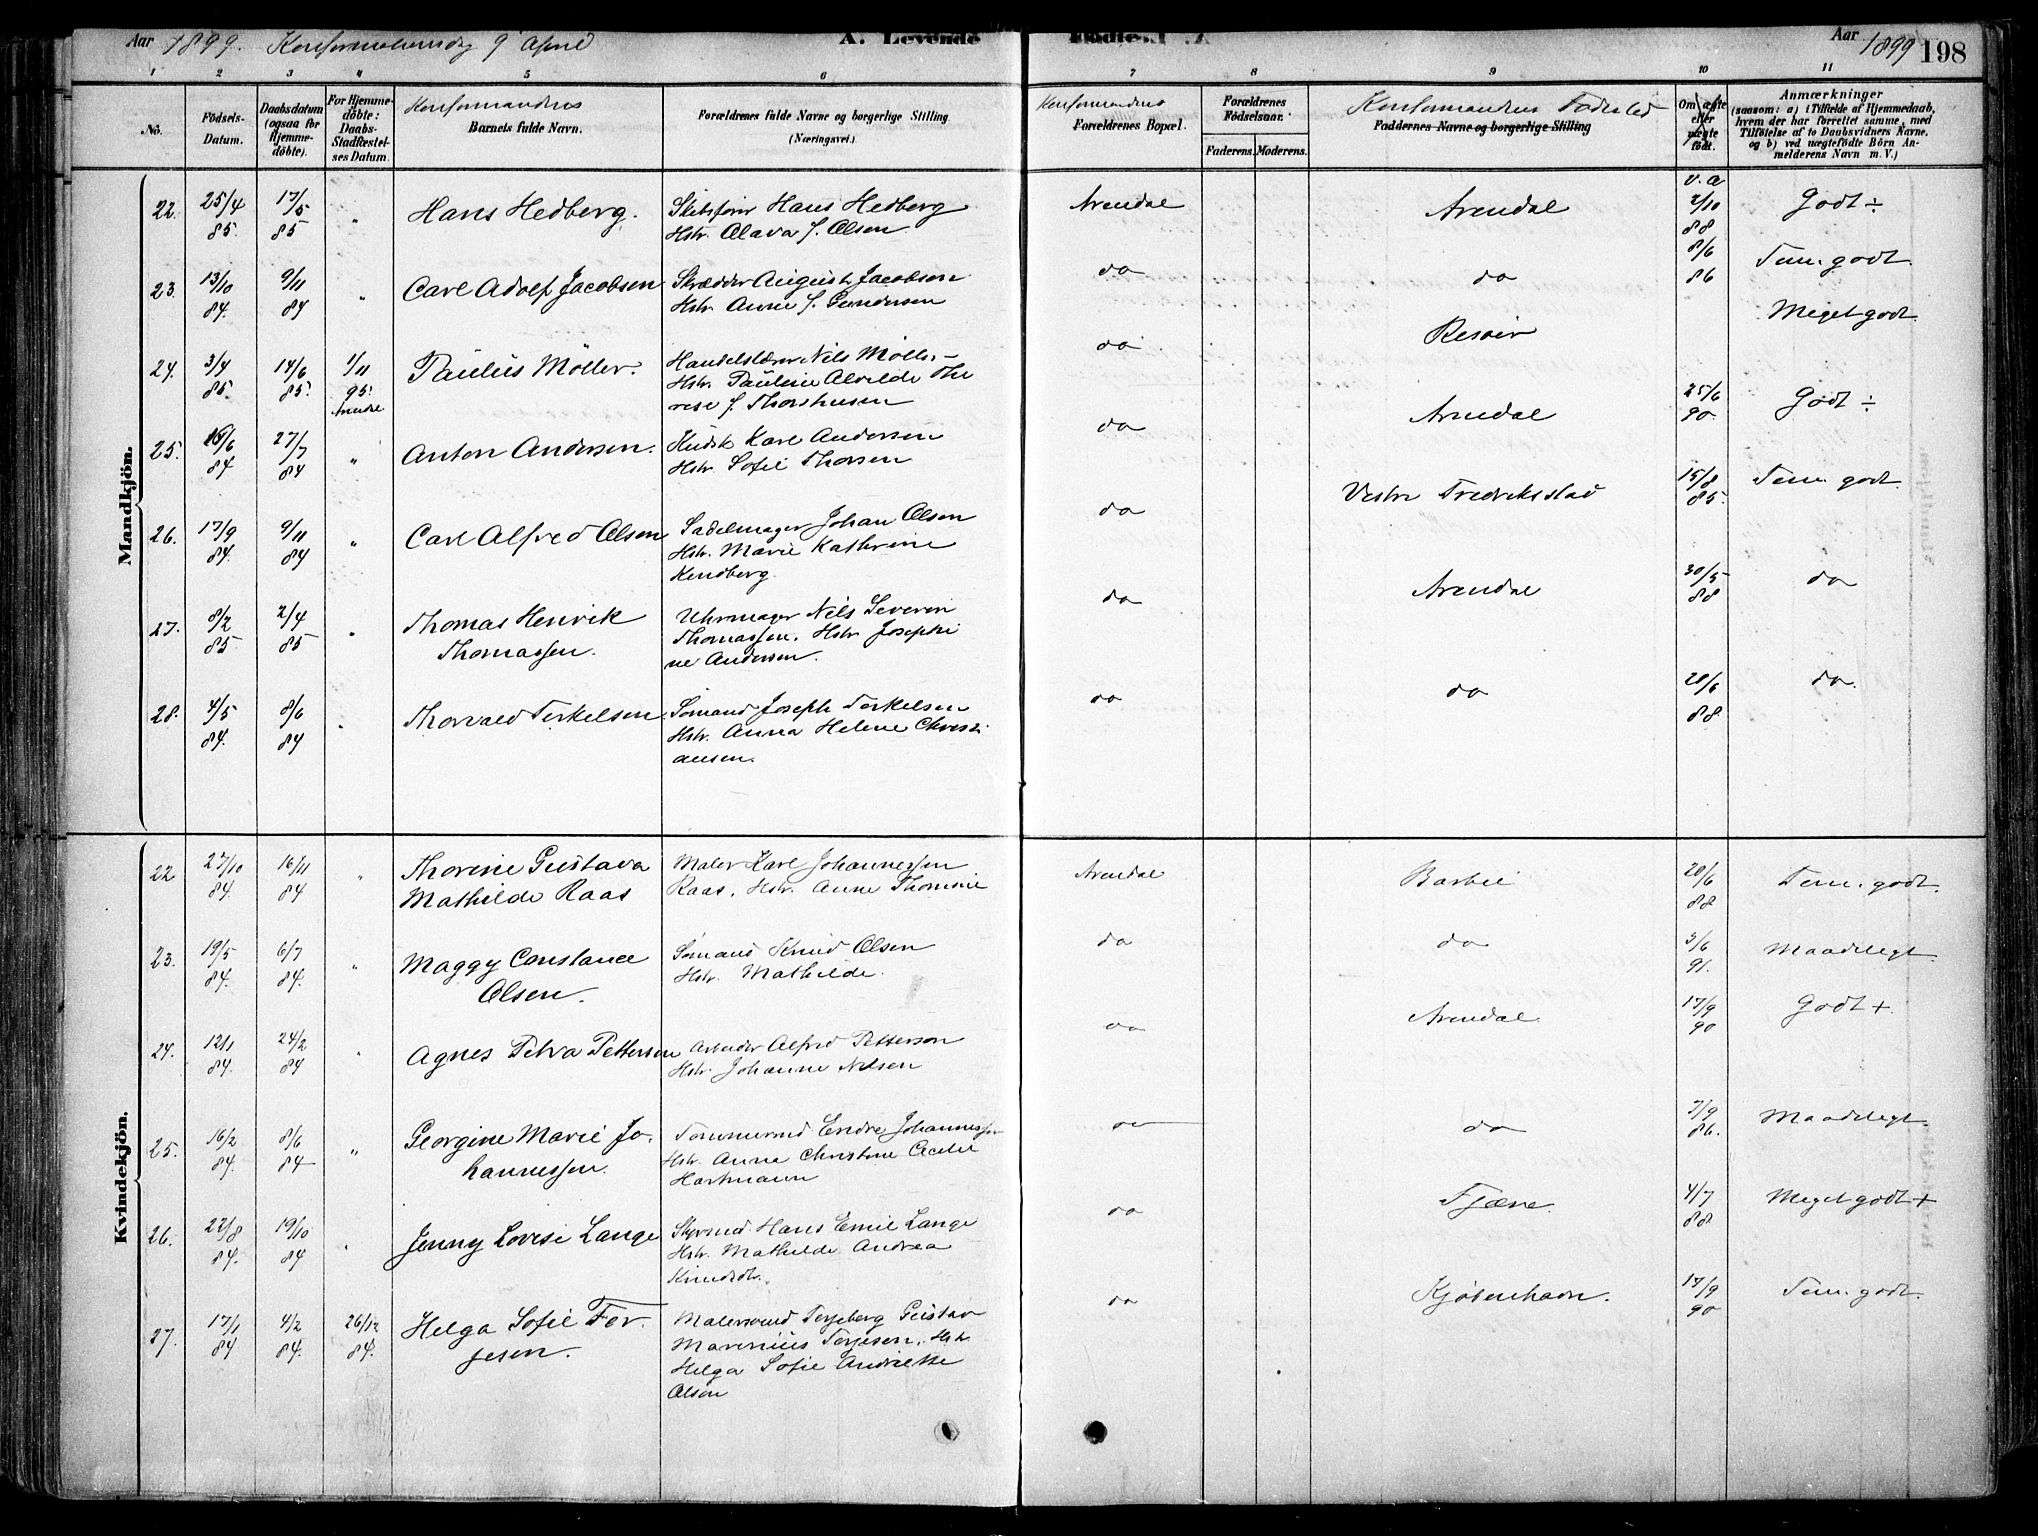 Aar 1899. Konfirmationsdag 9 April A. Levende Födte. Aar 1899 198
1 2 3 4 5 6 7 8 9 10 11
No.
Födsels-Datum.
Daabsdatum (ogsaa for Hjemme-döbte).
For Hjemme-döbte: Daabs-Stadfæstelses Datum.
Konfirmandens
Barnets fulde Navn.
Forældrenes fulde Navne og borgerlige Stilling
(Næringsvei.)
Konfirmandens
Forældrenes Bopæl.
Forældrenes Födselsaar.
Faderens. Moderens.
Konfirmandens Fødested
Faddernes Navne og borgerlige Stilling
Om ægte eller uægte födt.
Anmærkninger
(saasom: a) i Tilfælde af Hjemmedaab, hvem der har forrettet samme, med Tilföielse af to Daabsvidners Navne, og b) ved uægtefödte Börn Anmelderens Navn m. V.)
Mandkjön.
v. a
22. 25/4 85. 17/5 85 " Hans Hedberg. Skibsfører Hans Hedberg Arendal Arendal 2/10 88 Godt ÷
Hstr. Olava f. Olsen
23. 13/10 84. 9/11 84 " Carl Adolf Jacobsen Skrædder August Jacobsen do do 8/6 86 Tem. godt.
Hstr. Anne f. Gundersen
24. 3/4 85. 14/6 85. 1/11 95. Paulus Möller. Handelslærer Nils Möller do Risøir Meget godt
Hstr. Pauline Alvilde The
rese f. Thorshusen
25. 16/6 84 27/7 84 " Anton Andersen. Kudsk Karl Andersen do Arendal 25/6 90. Godt ÷
Hstr. Sofie Thorsen
26. 17/9 84. 9/11 84 " Carl Alfred Olsen Sadelmager Johan Olsen do Vestre Fredriksstad 15/8 85. Tem. godt.
Hstr. Marie Kathrine
Kendberg.
27. 8/2 85 2/4 85 " Thomas Henrik Uhrmager Nils Severin do Arendal 30/5 88 do
Thomassen. Thomassen. Hstr Josephi
ne Andersen.
28. 4/5 84. 8/6 84 " Thorvald Terkelsen. Sömand Joseph Terkelsen do do 20/6 88. do.
Hstr. Anna Helene Christi
ansen.
Kvindekjön.
22 27/10 84. 16/11 84 " Thorine Gustava Maler Karl Johannessen Arendal Barbu 20/6 88 Tem. godt.
Mathilde Raas Raas. Hstr. Anne Thomine
23. 19/5 84. 6/7 84. " Maggy Constance Sömand Knud Olsen do do 3/6 91. Maadeligt.
Olsen. Hstr. Mathilde.
24. 12/1 84. 24/2 84 " Agnes Petra Pettersen Arbeider Alfred Pettersen do Arendal 17/9 90 Godt +
Hstr. Johanne Nilsen
25. 16/2 84. 8/6 84 " Georgine Marie Jo- Tömmermd Endre Johannessen do do 7/9 86. Maadeligt.
hannessen. Hstr. Anna Christine Cecilie
Hartmann
26. 22/8 84. 19/10 84 " Jenny Lovise Lange Styrmd. Hans Emil Lange do Fjære 4/7 88 Meget godt +
Hstr. Mathilde Andrea
Knudsdtr.
27. 17/1 84 4/2 84. 26/12 84. Helga Sofie Ter- Malersvend Terjeberg Gustav do Kjøbenhavn. 17/9 90 Tem. godt.
jesen. Marenius Terjesen. Hstr
Helga Sofie Andrette
Olsen